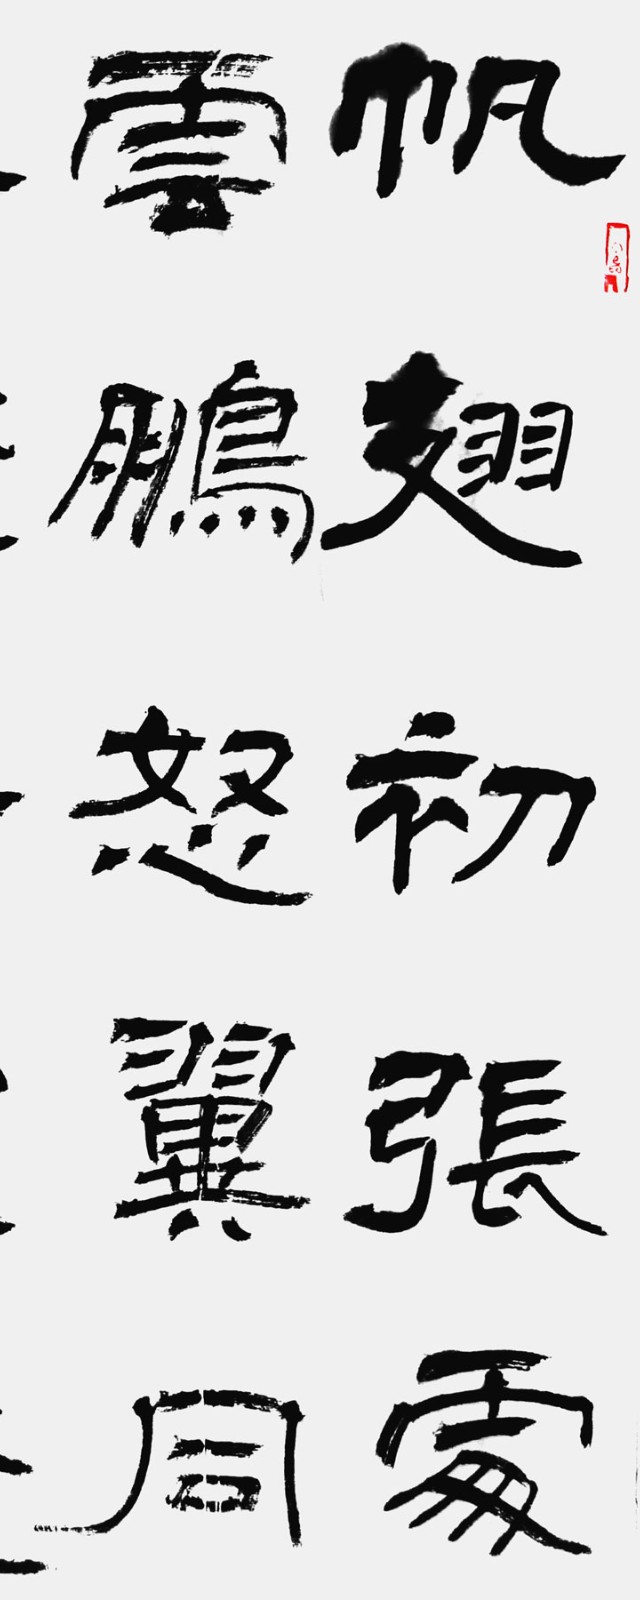 帆翅初張處
雲鵬怒翼同